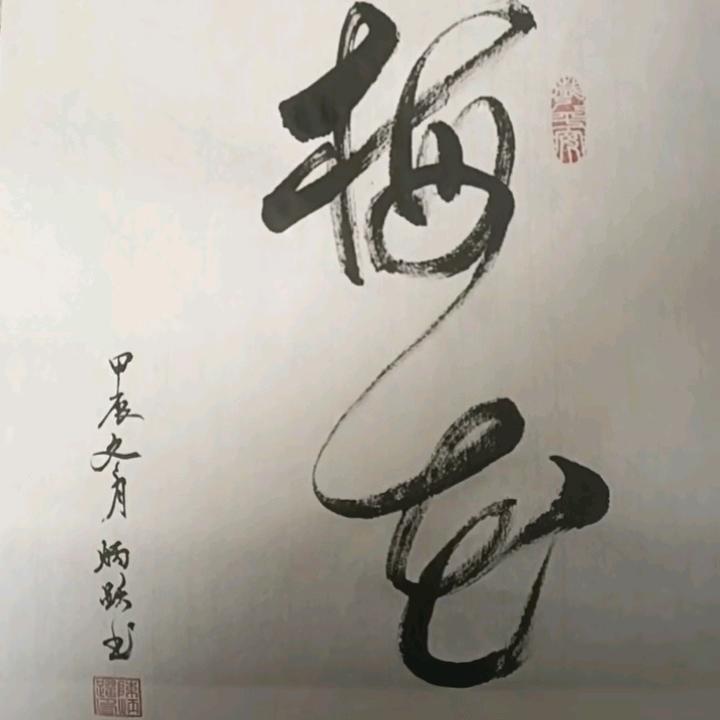 梅花
甲辰冬月 炳跃书